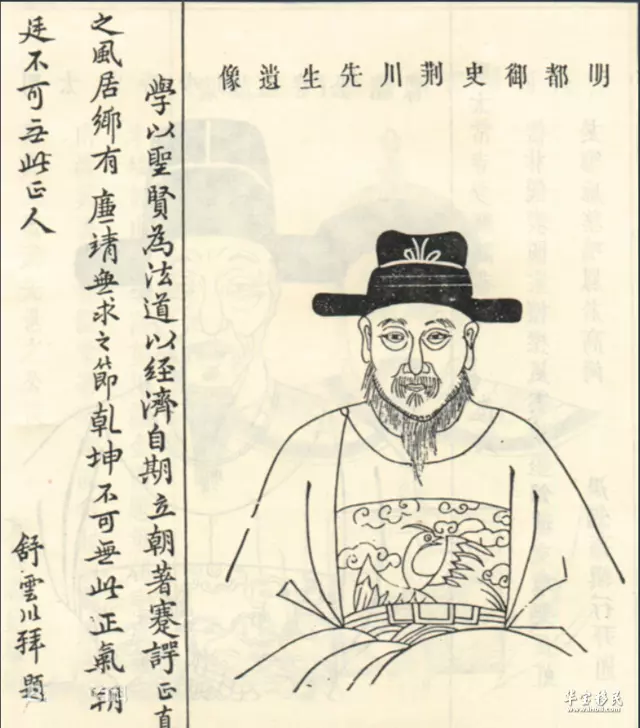 明都御史荆川先生遺像
學以聖賢為法道以经濟自期立朝著蹇諤正直
之風居鄉有廉靖無求之節乾坤不可無此正氣朝
廷不可无此正人
舒雲川拜題
华宝移民